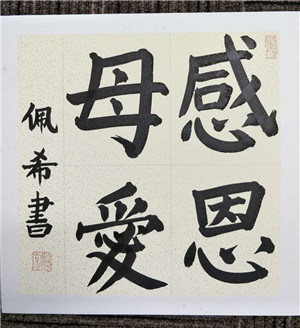 感恩
母愛
佩希書